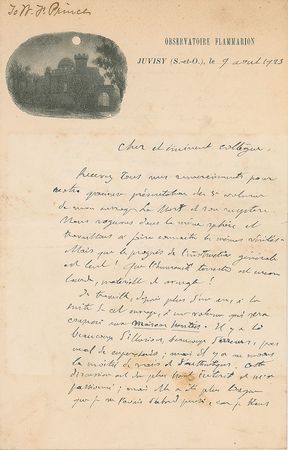 To W. F. Prince
OBSERVATOIRE FLAMMARION
JUVISY (S.-et-O.), le 9 avril 1923
Cher et éminent collègue,
Recevez tous mes remerciements pour
présentation du 3e volume
de mon ouvrage La Mort et son mystère
Nous voguons dans la même sphère et
travaillons à faire connaître les mêmes vérités
Mais que le progrès de l'instruction générale
est lent ! Que l'humanité terrestre est encore
lourde, matérielle et
Je travaille, depuis plus d'un an, à la
suite de cet ouvrage, à un volume qui sera
consacré aux maisons hantées. Il y a là
beaucoup d'illusions, beaucoup d'erreurs, pas
mal de supercheries ; mais il y a au moins
la moitié de vrais et d'authentiques. Cette
discussion est du plus haut intérêt et me
passionne ; mais elle a été plus longue
que je ne l'avais d'abord pensé, car je tiens